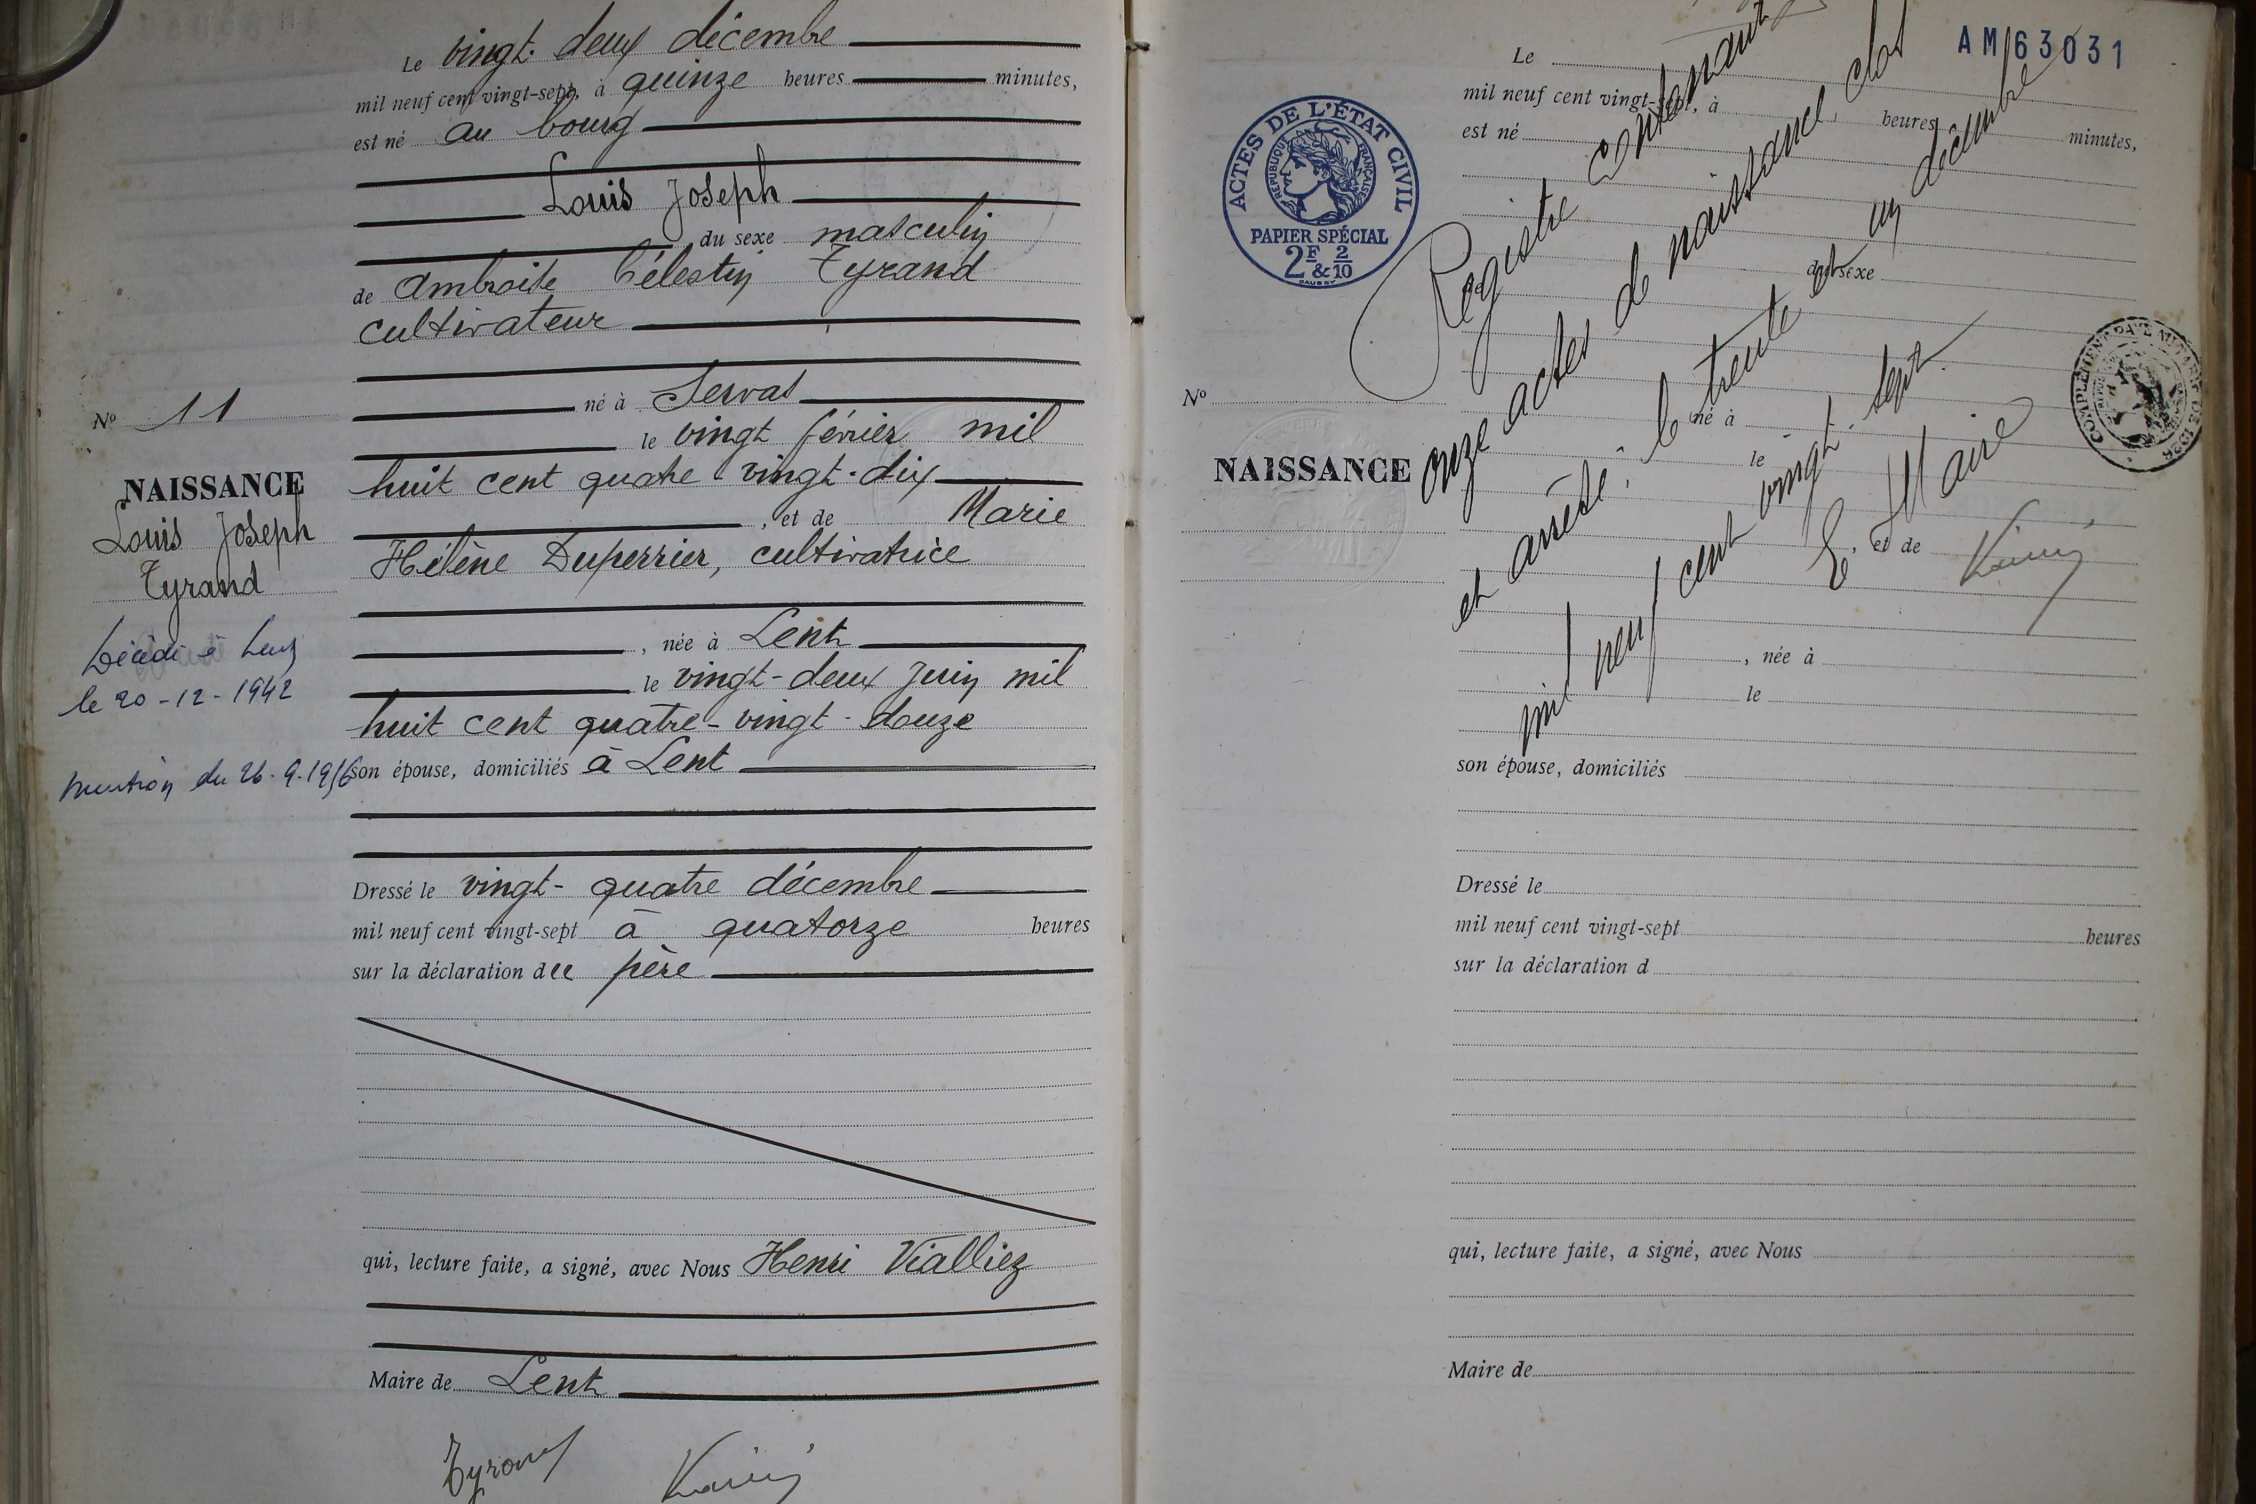 Le vingt-deux décembre
mil neuf cent vingt-sept, à quinze heures minutes,
est né au bourg
Louis Joseph
du sexe masculin
de Ambroise Célestin Tyrand
cultivateur
né à Servas
le vingt février mil
huit cent quatre vingt-dix
, et de Marie
Hélène Duperrier, cultivatrice
, née à Lent
le vingt-deux juin mil
huit cent quatre-vingt-douze
son épouse, domiciliés à Lent
Dressé le vingt-quatre décembre
mil neuf cent vingt-sept à quatorze heures
sur la déclaration du père
qui, lecture faite, a signé, avec Nous Henri Vialliez
Maire de Lent
Tyrand
No 11
NAISSANCE
Louis Joseph
Tyrand
Décédé à Lent
le 20-12-1942
mention du 26-9-1956
AM 63031
ACTES DE L'ÉTAT CIVIL
RÉPUBLIQUE FRANÇAISE
PAPIER SPÉCIAL
2F & 2/10
Le
mil neuf cent vingt-sept, à heures minutes,
est né
du sexe
de
né à
le
et de
, née à
le
son épouse, domiciliés
Dressé le
mil neuf cent vingt-sept heures
sur la déclaration d
qui, lecture faite, a signé, avec Nous
Maire de
No
NAISSANCE
Registre contenant
onze actes de naissance, clos
et arrêté le trente et un décembre
mil neuf cent vingt-sept
Le Maire